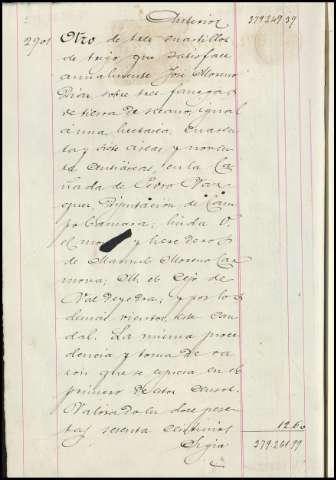 Anterior 379.249.39
2901 Otro de tres cuartillos
de trigo, que satisface
anualmente José Moreno
Díaz, sobre tres fanegas
de tierra de secano, igual
á una hectarea, cuaren
ta y siete áreas y noven
ta centiáreas, en la Ca
ñada de Pedro Vaz
quez, Diputación de Cam
po Camara; linda O.
el y tierra de
de Manuel Moreno Car
mona; M. el Cejo de
Val de y por los
demás vientos, este cau
dal. La misma proce
dencia y toma de ra
zon que se expresa en el
primero de estos censos.
Valorado en doce pese
tas sesenta centimos 12.60
Sigue 379.261.99